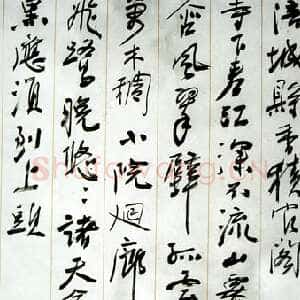 涪城縣香積官閣
寺下春江深不流山腰
含風翠壁孤雲
萬木稠小院迴廊
飛鷺晚悠々諸天合
黑應須到上頭